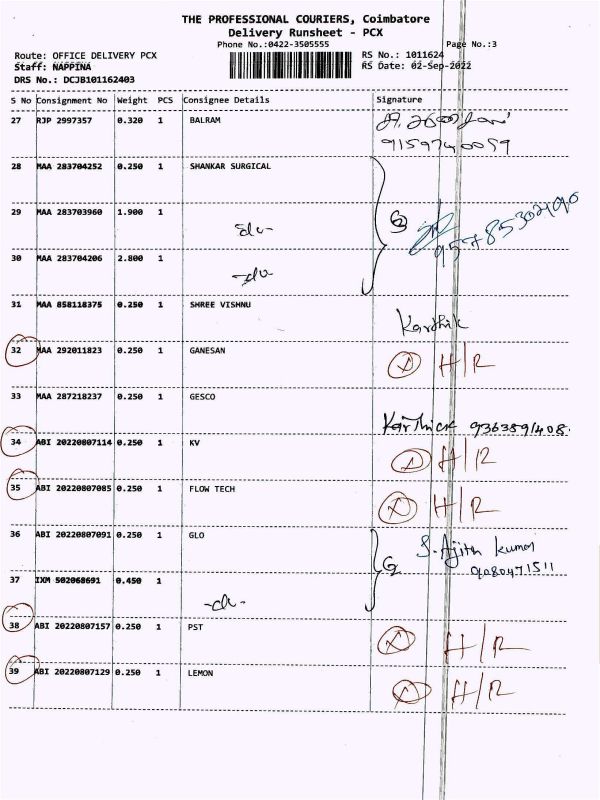 THE PROFESSIONAL COURIERS, Coimbatore
Delivery Runsheet - PCX
Phone No.:0422-3505555 Page No.:3
Route: OFFICE DELIVERY PCX RS No.: 1011624
Staff: NAPPINA RS Date: 02-Sep-2022
DRS No.: DCJB101162403
S No Consignment No Weight PCS Consignee Details Signature
27 RJP 2997357 0.320 1 BALRAM
9159740059
28 MAA 283704252 0.250 1 SHANKAR SURGICAL
29 MAA 283703960 1.900 1
-do-
30 MAA 283704206 2.800 1
-do-
31 MAA 858118375 0.250 1 SHREE VISHNU
Karthik
32 MAA 292011823 0.250 1 GANESAN
H/R
33 MAA 287218237 0.250 1 GESCO
Karthick 9363891408
34 ABI 20220807114 0.250 1 KV
H/R
35 ABI 20220807085 0.250 1 FLOW TECH
H/R
36 ABI 20220807091 0.250 1 GLO
S. Ajith Kumar
9080471511
37 IXM 502068691 0.450 1
-do-
38 ABI 20220807157 0.250 1 PST
H/R
39 ABI 20220807129 0.250 1 LEMON
H/R